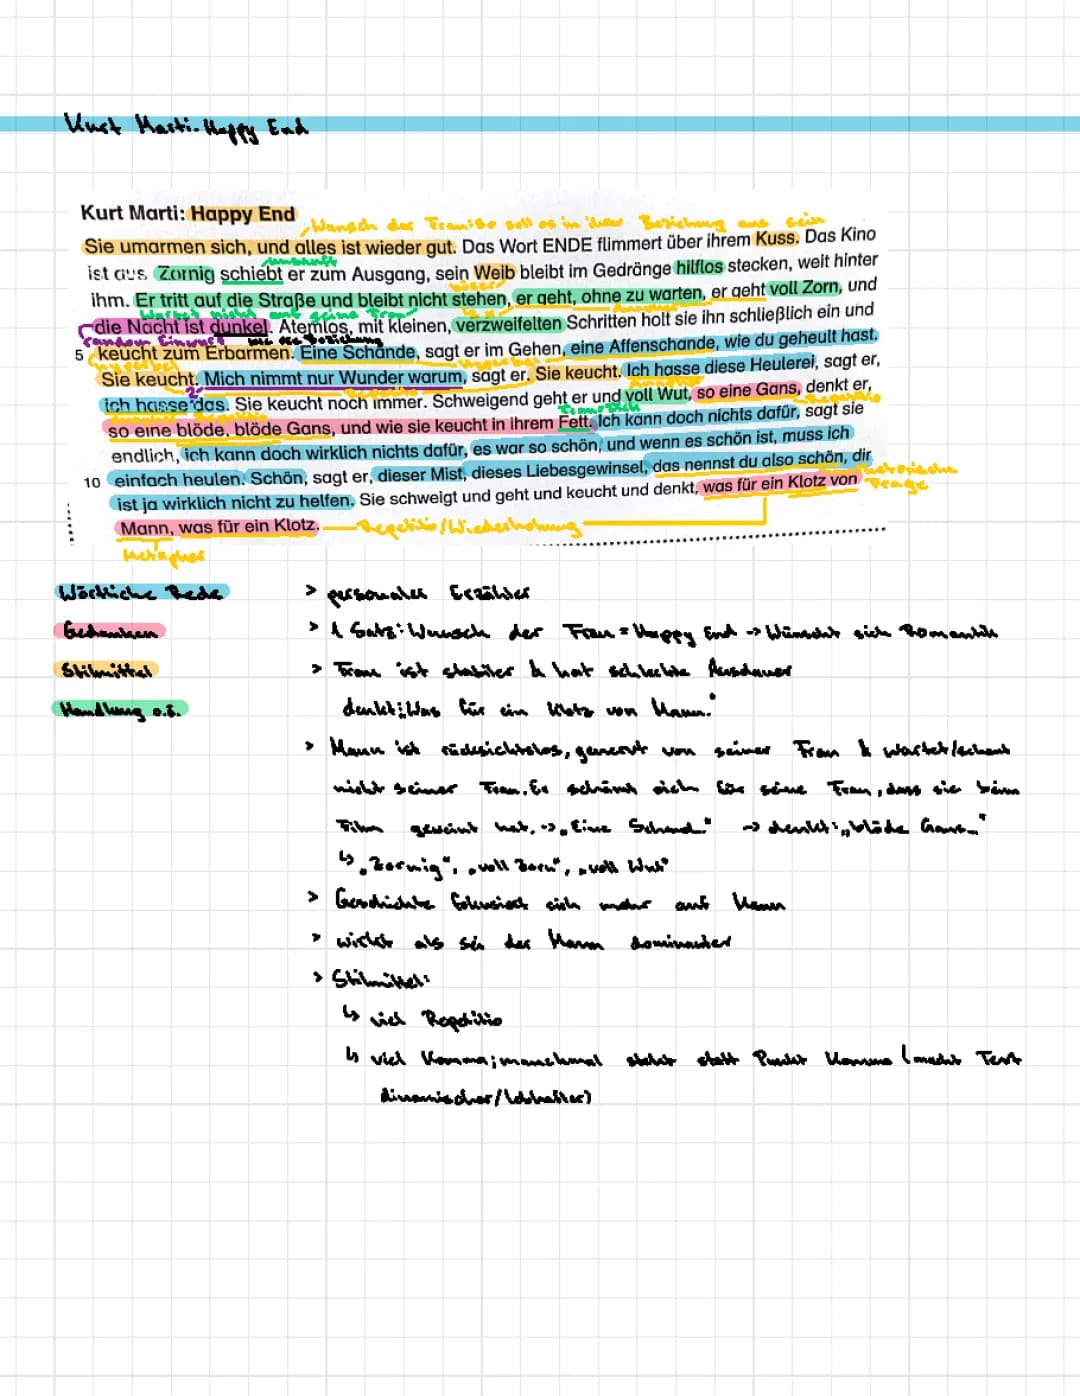 Kurt Marti - Happy End
Kurt Marti: Happy End
Wunsch der Frau: so soll es in ihrer Beziehung aus sein
Sie umarmen sich, und alles ist wieder gut. Das Wort ENDE flimmert über ihrem Kuss. Das Kino
ist aus. Zornig schiebt er zum Ausgang, sein Weib bleibt im Gedränge hilflos stecken, weit hinter
ihm. Er tritt auf die Straße und bleibt nicht stehen, er geht, ohne zu warten, er geht voll Zorn, und
Wartet nicht auf seine Frau
die Nacht ist dunkel. Atemlos, mit kleinen, verzweifelten Schritten holt sie ihn schließlich ein und
random Einwurf
wie die Beziehung
5 keucht zum Erbarmen. Eine Schande, sagt er im Gehen, eine Affenschande, wie du geheult hast.
Sie keucht. Mich nimmt nur Wunder warum, sagt er. Sie keucht. Ich hasse diese Heulerei, sagt er,
ich hasse das. Sie keucht noch immer. Schweigend geht er und voll Wut, so eine Gans, denkt er,
so eine blöde, blöde Gans, und wie sie keucht in ihrem Fett. Ich kann doch nichts dafür, sagt sie
endlich, ich kann doch wirklich nichts dafür, es war so schön, und wenn es schön ist, muss ich
10 einfach heulen. Schön, sagt er, dieser Mist, dieses Liebesgewinsel, das nennst du also schön, dir
rhetorische Frage
ist ja wirklich nicht zu helfen. Sie schweigt und geht und keucht und denkt, was für ein Klotz von
Mann, was für ein Klotz.
Repetitio/Wiederholung
Metapher
Wörtliche Rede
Gedanken
Stilmittel
Handlung o.ä.
> personaler Erzähler
> 1 Satz: Wunsch der Frau = Happy End -> Wünscht sich Romantik
> Frau ist stabiler & hat schlechte Ausdauer
denkt: „Was für ein Klotz von Mann."
> Mann ist rücksichtslos, genervt von seiner Frau & wartet/schaut
nicht seiner Frau. Er schämt sich für seine Frau, dass sie beim
Film geweint hat. -> „Eine Schand.." -> denkt: „blöde Gans..."
↳ „Zornig", „voll Zorn", „voll Wut"
> Geschichte fokusiert sich mehr auf Mann
> wirkt als sei der Mann dominanter
> Stilmittel:
↳ viel Repetitio
↳ viel Komma; manchmal steht statt Punkt Komma (macht Text
dinamischer/lebhafter)